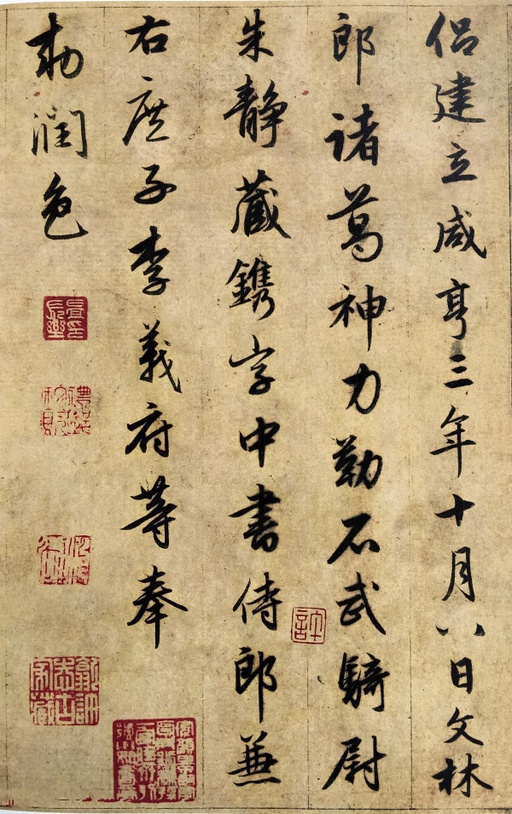 侣建立咸亨三年十月八日文林
郎诸葛神力勒石武骑尉
朱静藏鐫字中書侍郎兼
右庶子李義府等奉
勑潤色